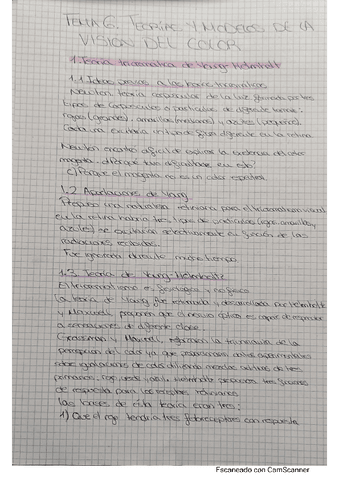 TEMA 6. TEORÍAS Y MODELOS DE LA
VISIÓN DEL COLOR
1. Teoría tricromática de Young-Helmholtz
1.1 Ideas previas a las bases tricromáticas
Newton teoría corpuscular de la luz formada por tres
tipos de corpúsculos o partículas de diferente tamaño:
rojas (grandes), amarillas (medianas) y azules (pequeñas).
Cada una excitaría un tipo de fibra diferente en la retina
Newton encontró difícil de explicar la existencia del color
magenta. ¿Por qué tuvo dificultades en esto?
c) Porque el magenta no es un color espectral
1.2 Aportaciones de Young
Propuso una naturaleza retiniana para el tricromatismo visual
en la retina habría tres tipos de partículas (rojas, amarillas y
azules) se excitarían selectivamente en función de las
radiaciones recibidas.
Fue ignorada durante mucho tiempo
1.3 Teoría de Young-Helmholtz
El tricromatismo es fisiológico y no físico
La teoría de Young fue retomada y desarrollada por Helmholtz
y Maxwell, proponen que el nervio óptico es capaz de responder
a sensaciones de diferente clase.
Grassman y Maxwell, refuerzan la tricromacía de la
percepción del color ya que proporcionan datos experimentales
sobre igualaciones de color utilizando mezclas aditivas de tres
primarios, rojo, verde y azul. Helmholtz propuso tres funciones
de respuesta para los receptores retinianos
Las bases de esta teoría eran tres:
1) Que el ojo tendría tres fotorreceptores con respuesta
Escaneado con CamScanner